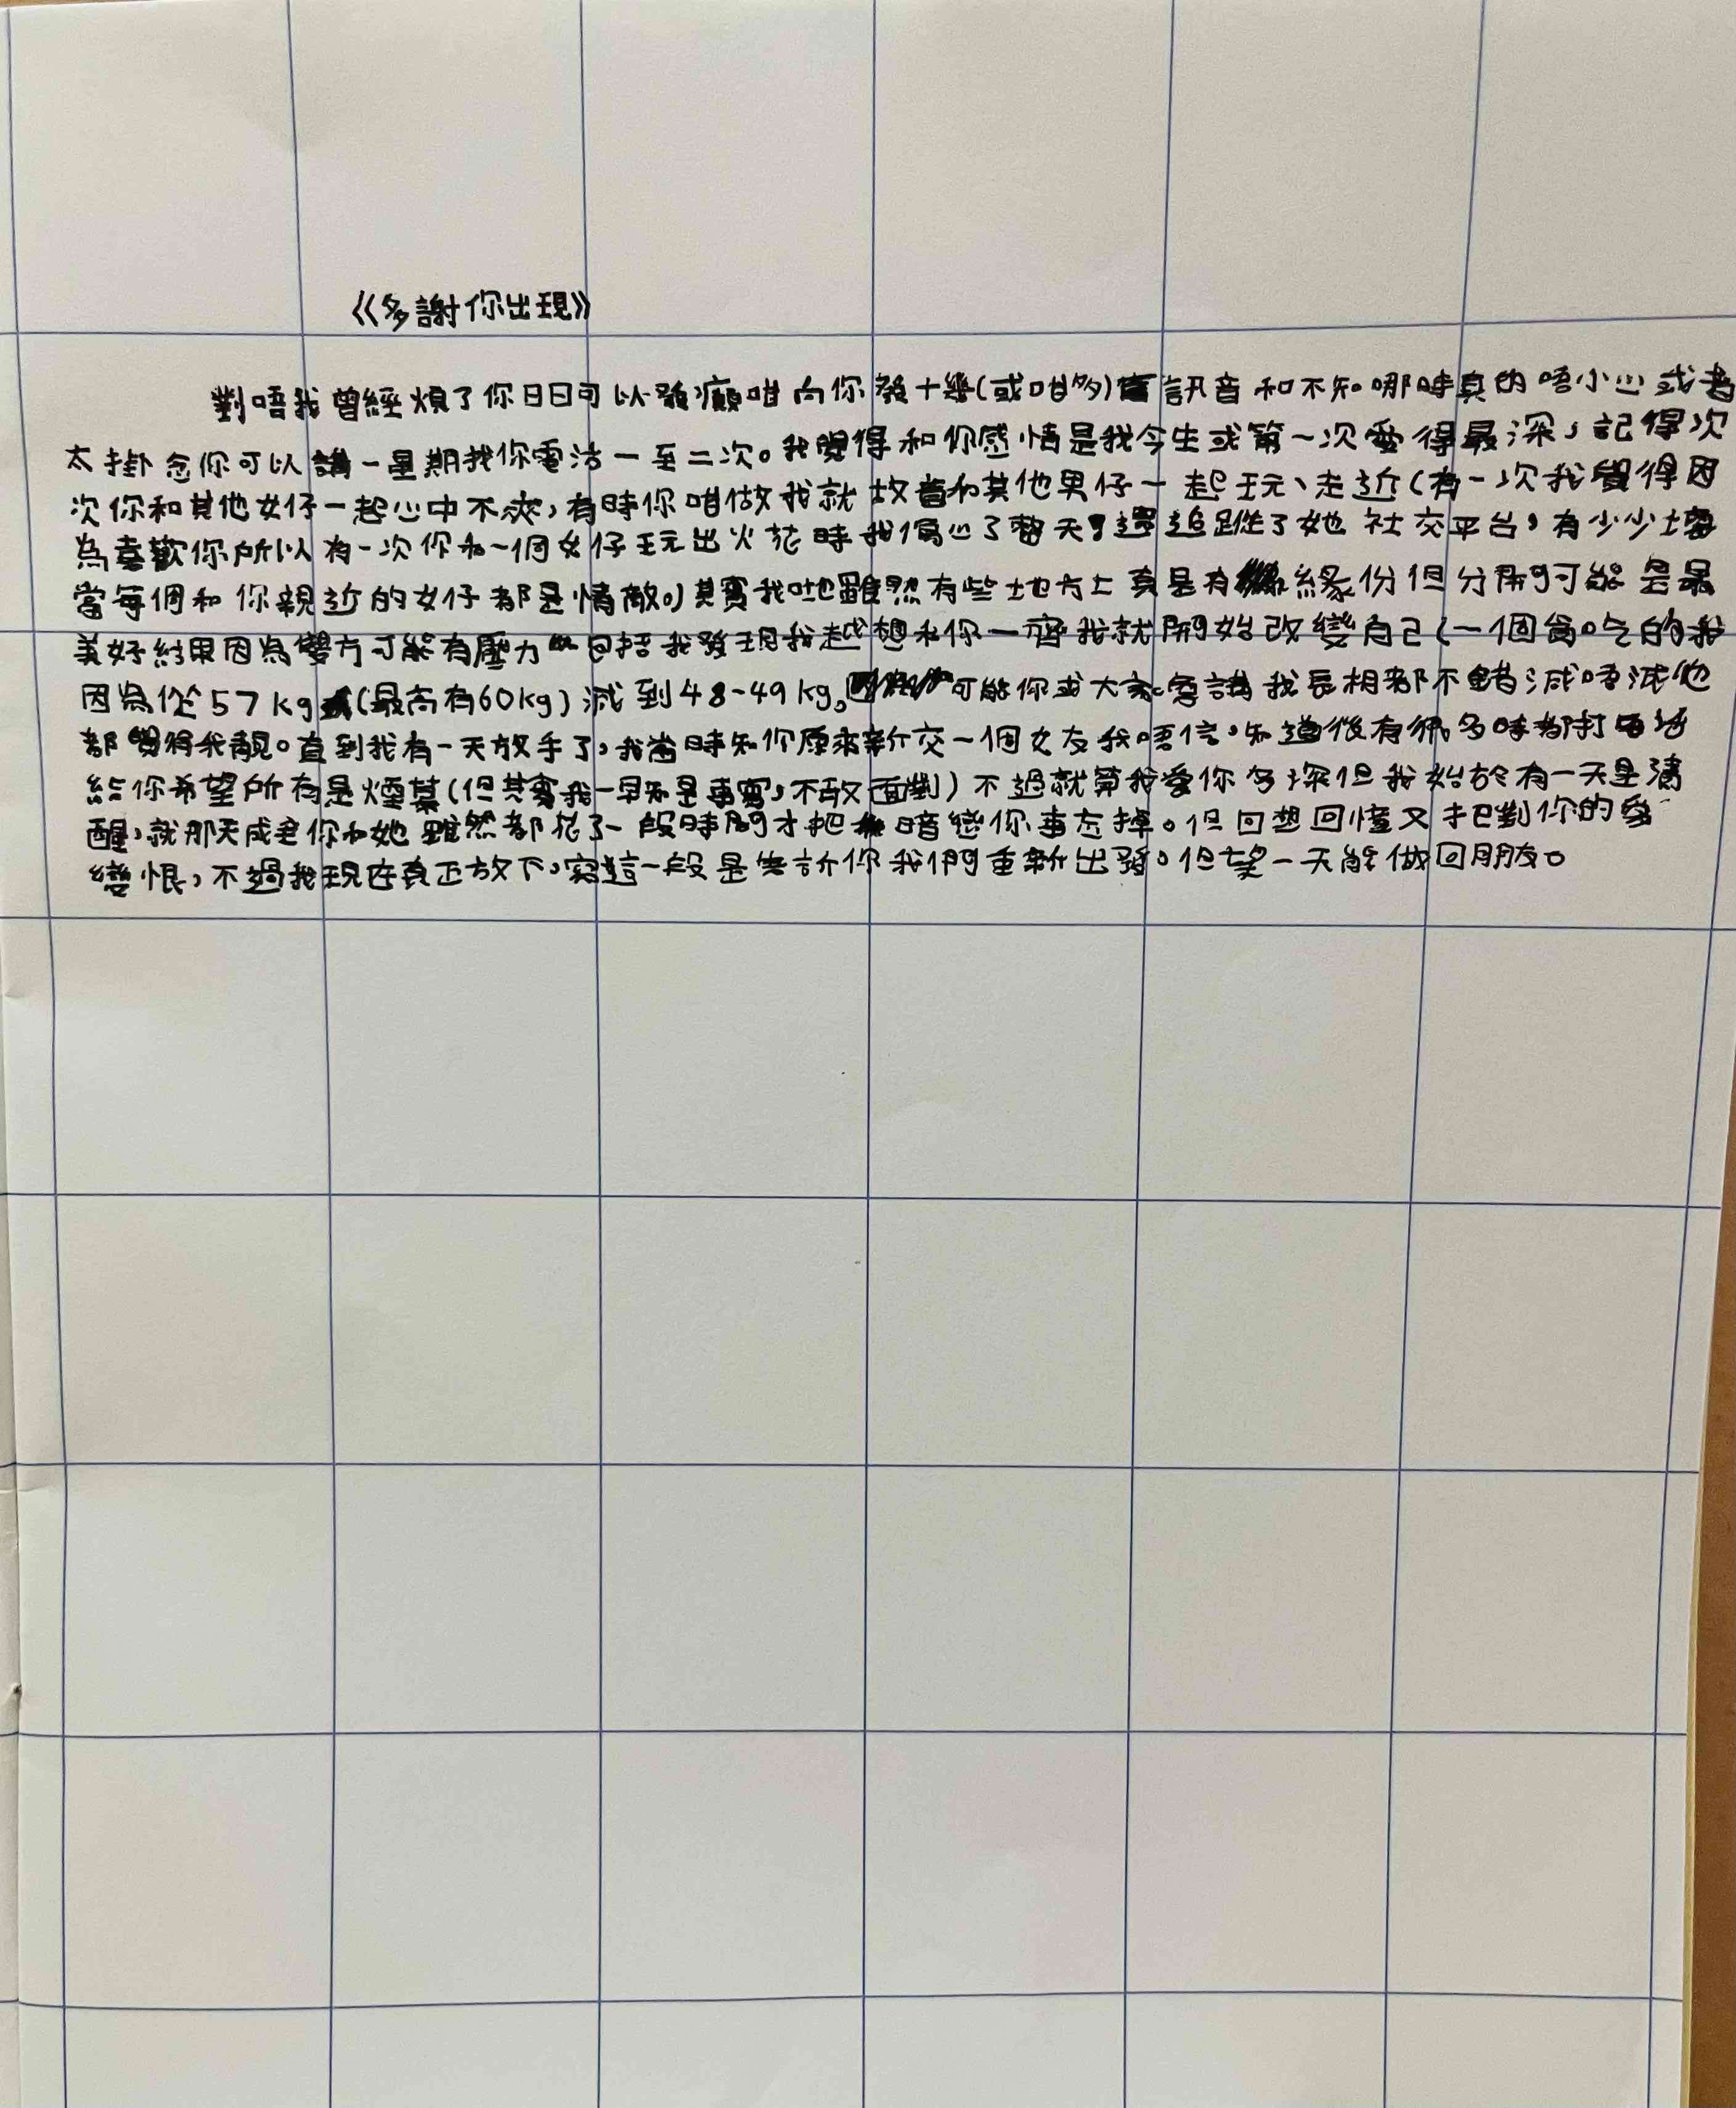 《多謝你出現》
對唔我曾經煩了你日日可以發癲咁向你發十幾(或咁多)訊音和不知哪時真的唔小心或者
太掛念你可以講一星期找你電話一至二次。我覺得和你感情是我今生或第一次愛得最深，記得次
次你和其他女仔一起心中不爽，有時你咁做我就故意和其他男仔一起玩、走近(有一次我覺得因
為喜歡你所以有一次你和一個女仔玩出火花時我傷心了整天，還追蹤了她社交平台，有少少
當每個和你親近的女仔都是情敵。)其實我哋雖然有些地方上真是有緣份但分開可能是最
美好結果因為雙方可能有壓力包括我發現我越想和你一齊我就開始改變自己(一個貪吃的我
因為從57kg(最高有60kg)減到48-49kg。可能你或大家會講我長相都不錯減唔減也
都覺得我靚。直到我有一天放手了，我當時知你原來新交一個女友我唔信，知道後有很多時都打電話
給你希望所有是煙幕(但其實我一早知是事實，不敢面對)不過就算我愛你多深但我始於有一天是清
醒，就那天成全你和她雖然都花了一段時間才把暗戀你事忘掉。但回想回憶又把對你的愛
變恨，不過我現在真正放下，寫這一段是告訴你我們重新出發。但望一天能做回朋友。